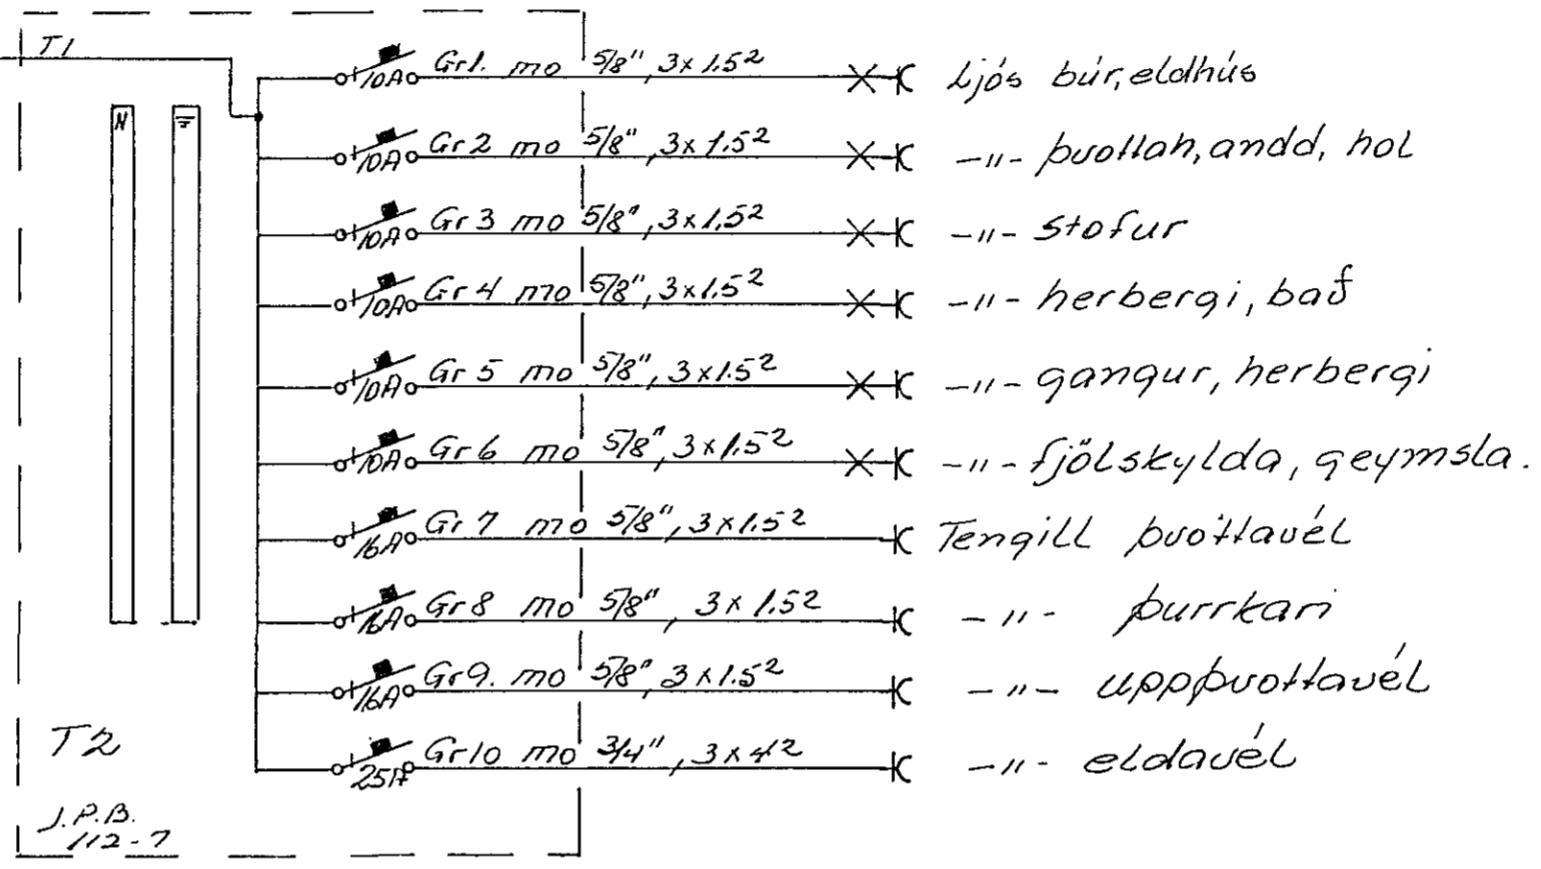 T1
10A Gr1. mo 5/8", 3x1.5² Ljós búr, eldhús
N
10A Gr2 mo 5/8", 3x1.5² -"- þvottah, andd, hol
10A Gr3 mo 5/8", 3x1.5² -"- stofur
10A Gr4 mo 5/8", 3x1.5² -"- herbergi, bað
10A Gr5 mo 5/8", 3x1.5² -"- gangur, herbergi
10A Gr6 mo 5/8", 3x1.5² -"- fjölskylda, geymsla.
16A Gr7 mo 5/8", 3x1.5² Tengill þvottavél
16A Gr8 mo 5/8", 3x1.5² -"- þurrkari
16A Gr9. mo 5/8", 3x1.5² -"- uppþvottavél
T2
25A Gr10 mo 3/4", 3x4² -"- eldavél
J.P.B.
112-7